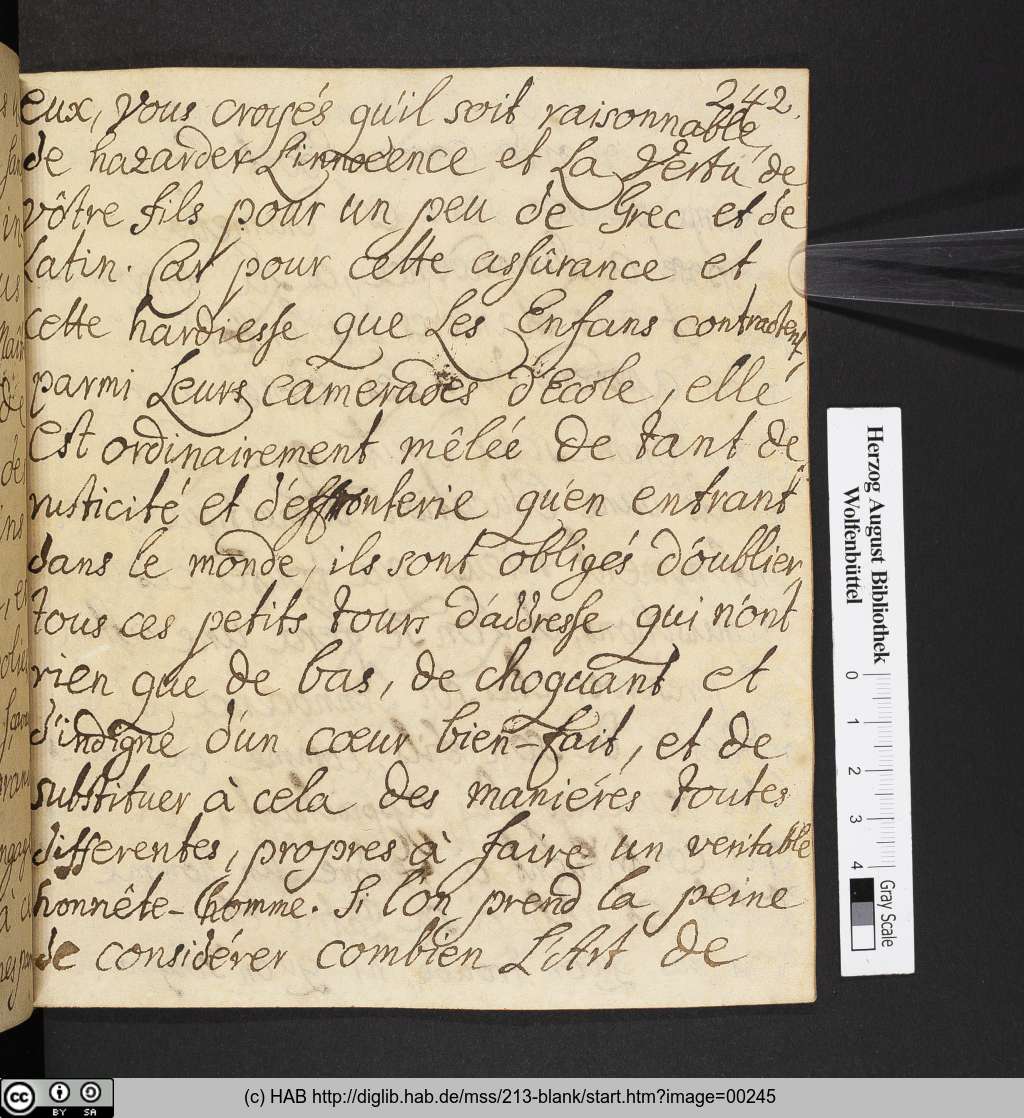 242.
eux, vous croyés qu'il soit raisonnable,
de hazarder L'innocence et La vertu de
vôtre fils pour un peu de Grec et de
Latin. Car pour cette assûrance et
cette hardiesse que Les Enfans contractent
parmi Leurs camerades d'Ecole, elle
est ordinairement mêleé de tant de
rusticité et d'effronterie qu'en entrant
dans le monde, ils sont obligés d'oublier
tous ces petits tours d'addresse qui n'ont
rien que de bas, de choquant et
d'indigne d'un cœur bien-fait, et de
substituer à cela des maniérés toutes
differentes, propres à faire un veritable
honnête-homme. Si l'on prend la peine
de considérer combien L'Art de
Herzog August Bibliothek
Wolfenbüttel
0 1 2 3 4
Gray Scale
cc BY SA
(c) HAB http://diglib.hab.de/mss/213-blank/start.htm?image=00245